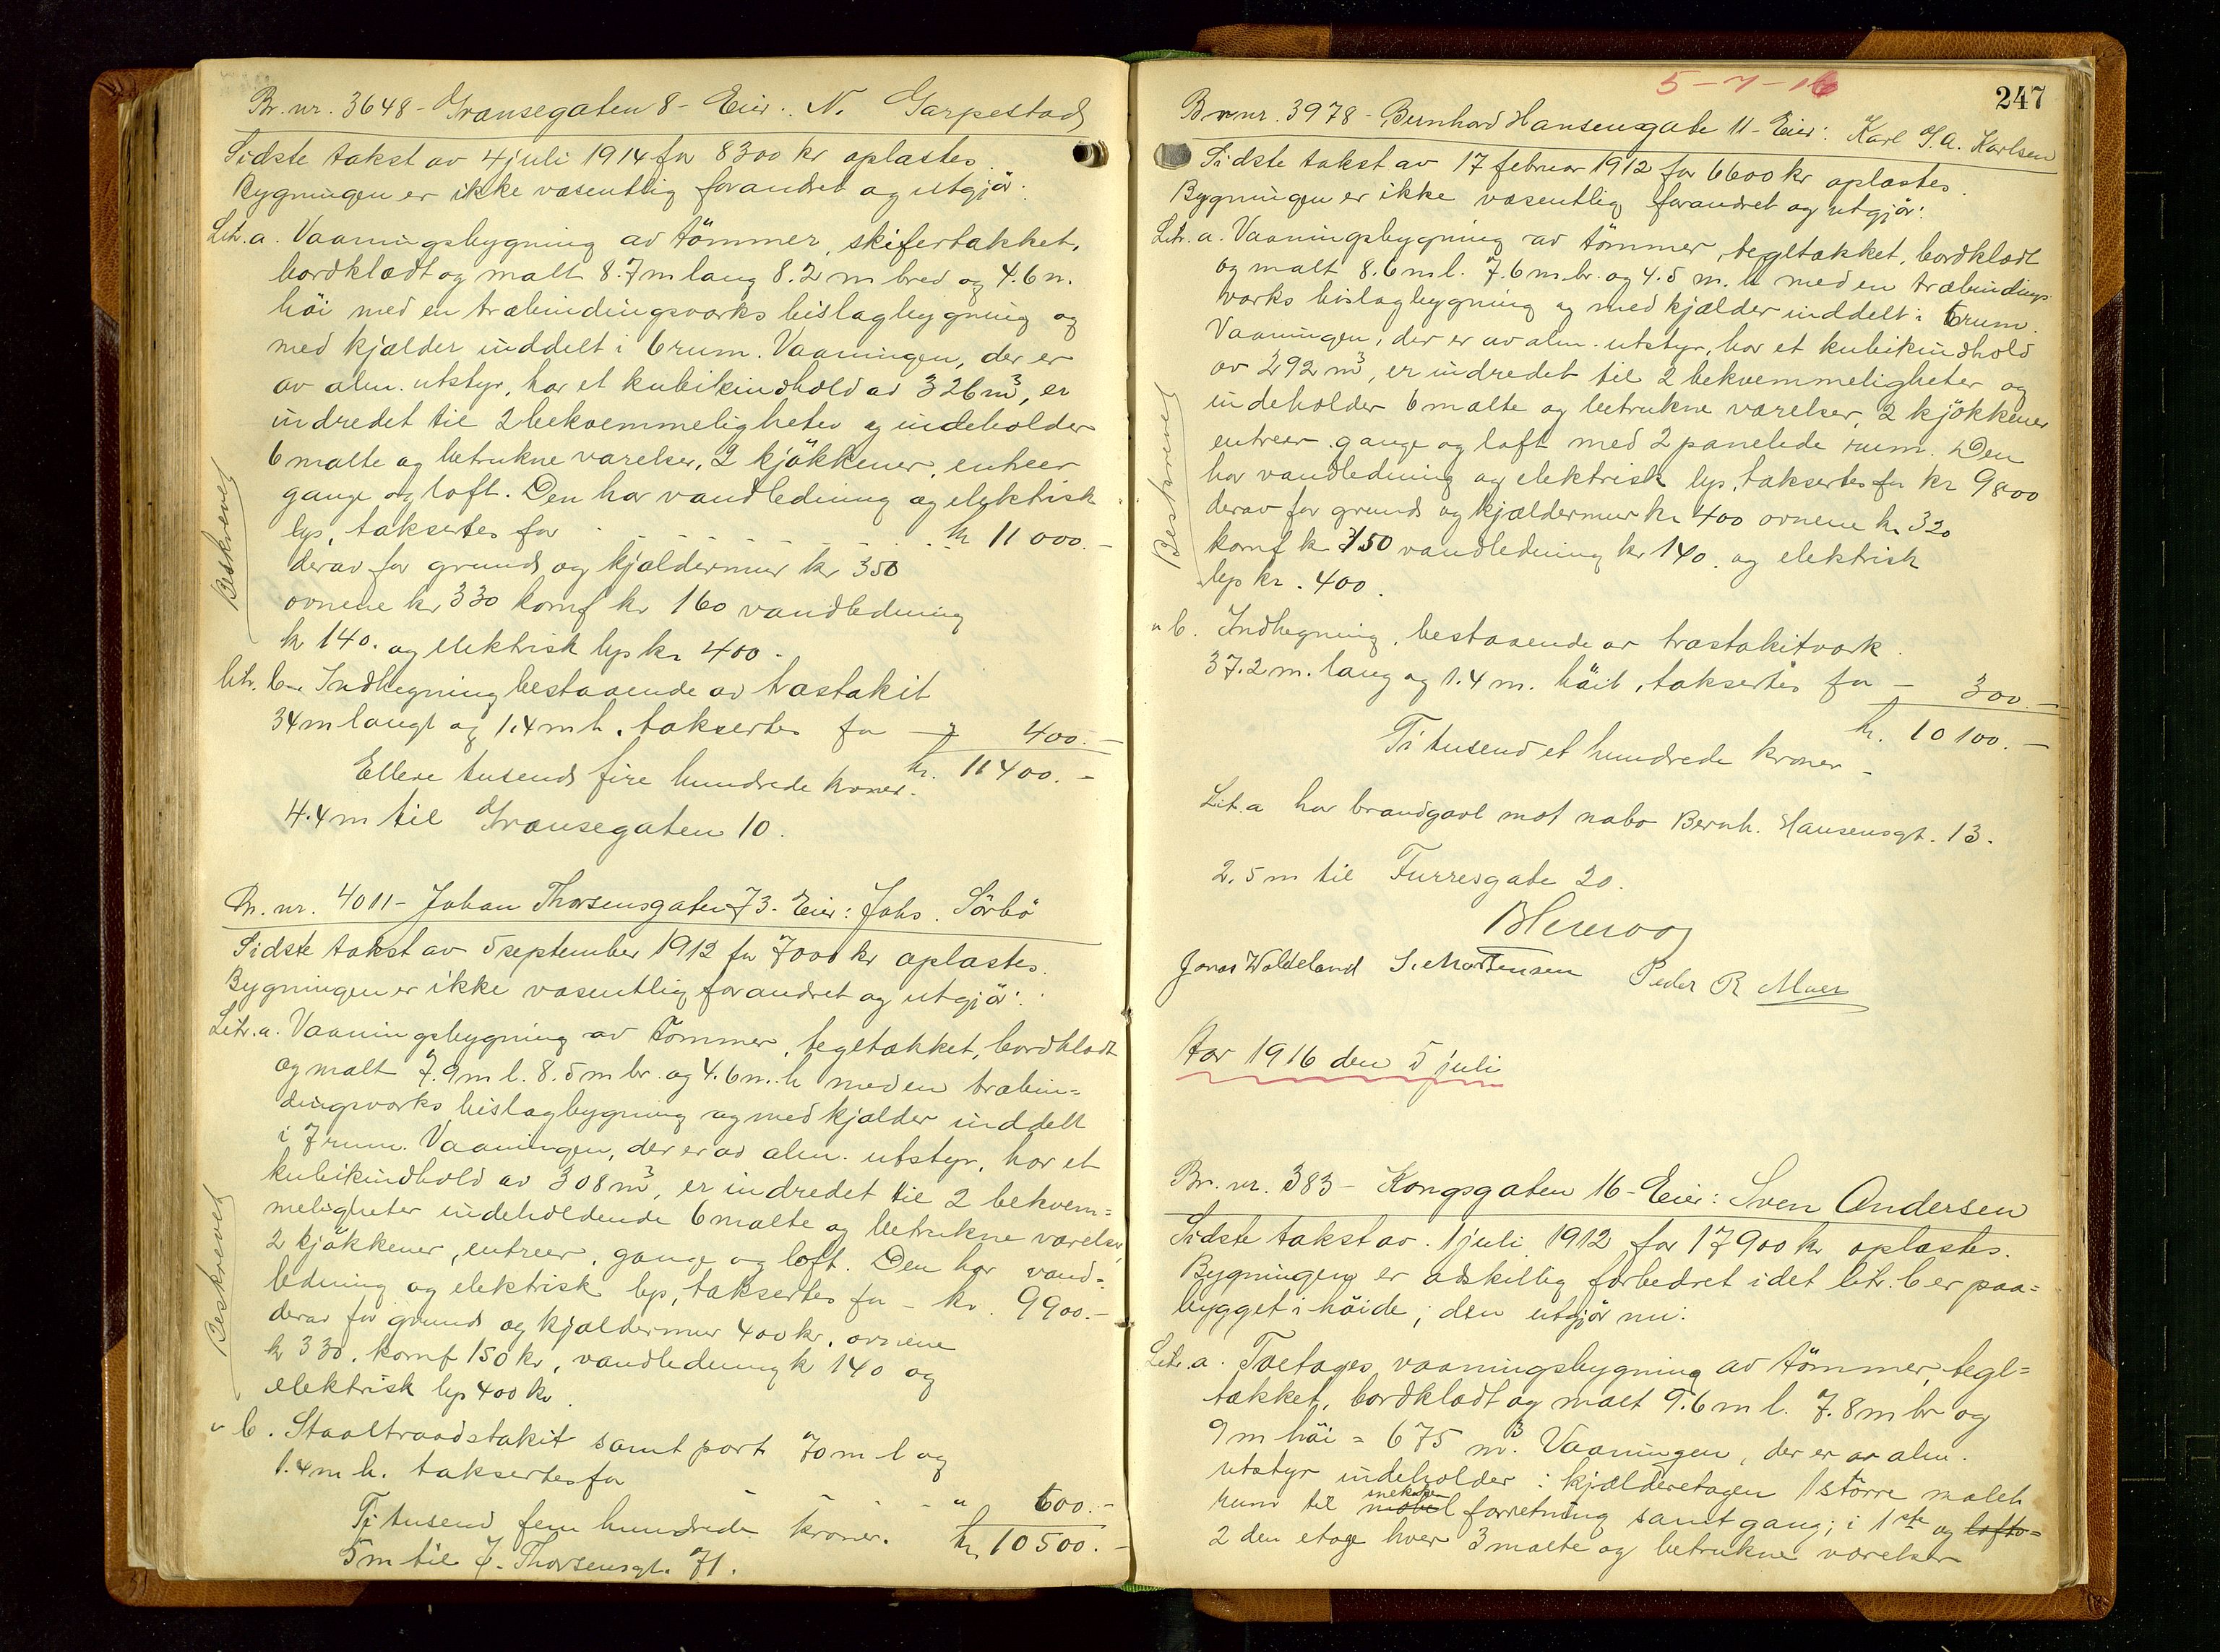 Br. nr. 3648 - Gransegaten 8 - Eier: N. Garpestad
Sidste takst av 4 juli 1914 for 8300 kr oplæstes.
Bygningen er ikke væsentlig forandret og utgjör:
Litr. a. Vaaningsbygning av tömmer, skifertækket,
bordklædt og malt 8.7 m lang 8.2 m bred og 4.6 m.
höi med en træbindingsværks bislagbygning og
med kjælder inddelt i 6 rum. Vaaningen, der er
av alm. utstyr, har et kubikindhold av 326 m³, er
indredet til 2 bekvemmeligheter og indeholder
6 malte og betrukne værelser, 2 kjökkener, entreer
gange og loft. Den har vandledning og elektrisk
lys, taksertes for - - - - - - - kr 11 000.-
derav for grund og kjældermur kr 350
ovnene kr 330 komf kr 160 vandledning
kr 140. og elektrisk lys kr 400.
Beskrevet
litr. b. Indhegning bestaaende av træstakit
34 m langt og 1.4 m h. taksertes for - " 400.-
kr. 11400.-
Elleve tusend fire hundrede kroner.
4.4 m til Gransegaten 10.
Br. nr. 4011 - Johan Thorsensgaten 73 - Eier: Johs. Sörbö
Sidste takst av 5 september 1912 for 7000 kr oplæstes.
Bygningen er ikke væsentlig forandret og utgjör:
Litr. a. Vaaningsbygning av tömmer, tegltækket, bordklædt
og malt 7.9 m l. 8.5 m br. og 4.6 m. h med en træbin=
dingsværks bislagbygning og med kjælder inddelt
i 7 rum. Vaaningen, der er av alm. utstyr, har et
kubikindhold av 308 m³, er indredet til 2 bekvem=
meligheter indeholdende 6 malte og betrukne værelser,
2 kjökkener, entreer, gange og loft. Den har vand=
ledning og elektrisk lys, taksertes for - kr. 9900.-
derav for grund og kjældermur 400 kr. ovnene
kr 330. komf 150 kr, vandledning kr 140 og
elektrisk lys 400 kr.
Beskrevet
" b. Staaltraadstakit samt port 70 m l og
1.4 m h. taksertes for - - - - " 600.-
Ti tusend fem hundrede kroner. kr. 10500.-
5 m til J. Thorsensgt. 71.
5-7-16
247
Br. nr. 3978 - Bernhard Hansensgate 11 - Eier: Karl G.A. Karlsen
Sidste takst av 17 februar 1912 for 6600 kr oplæstes.
Bygningen er ikke væsentlig forandret og utgjör:
Litr. a. Vaaningsbygning av tömmer, tegltækket, bordklædt
og malt 8.6 m l. 7.6 m br. og 4.5 m. h med en træbindings
værks bislagbygning og med kjælder inddelt i 6 rum.
Vaaningen, der er av alm. utstyr, har et kubikindhold
av 292 m³, er indredet til 2 bekvemmeligheter og
indeholder 6 malte og betrukne værelser, 2 kjökkener
entreer gange og loft med 2 panelede rum. Den
har vandledning og elektrisk lys, taksertes for kr 9800
derav for grund og kjældermur kr 400 ovnene kr 320
komf kr 150 vandledning kr 140. og elektrisk
lys kr. 400.
Beskrevet
" b. Indhegning, bestaaende av træstakitværk
37.2 m. lang og 1.4 m. höit, taksertes for - 300.-
kr. 10 100.-
Ti tusend et hundrede kroner -
Lit. a har brandgavl mot nabo Bernh. Hansensgt. 13.
2,5 m til Furresgate 20.
Jonas Woldeland S. Mortensen Peder R Moen
Aar 1916 den 5 juli
Br. nr. 383 - Kongsgaten 16 - Eier: Sven Andersen
Sidste takst av 1 juli 1912 for 17900 kr oplæstes.
Bygningen er adskillig forbedret idet litr. b er paa=
bygget i höide; den utgjör nu:
Litr. a. Toetages vaaningsbygning av tömmer, tegl=
tækket, bordklædt og malt 9.6 m l. 7.8 m br og
9 m höi = 675 m³. Vaaningen, der er av alm.
utstyr indeholder i kjælderetagen 1 större malet
snekker
rum til möbel forretning samt gang; i 1ste og lofts=
2 den etage hver 3 malte og betrukne værelser